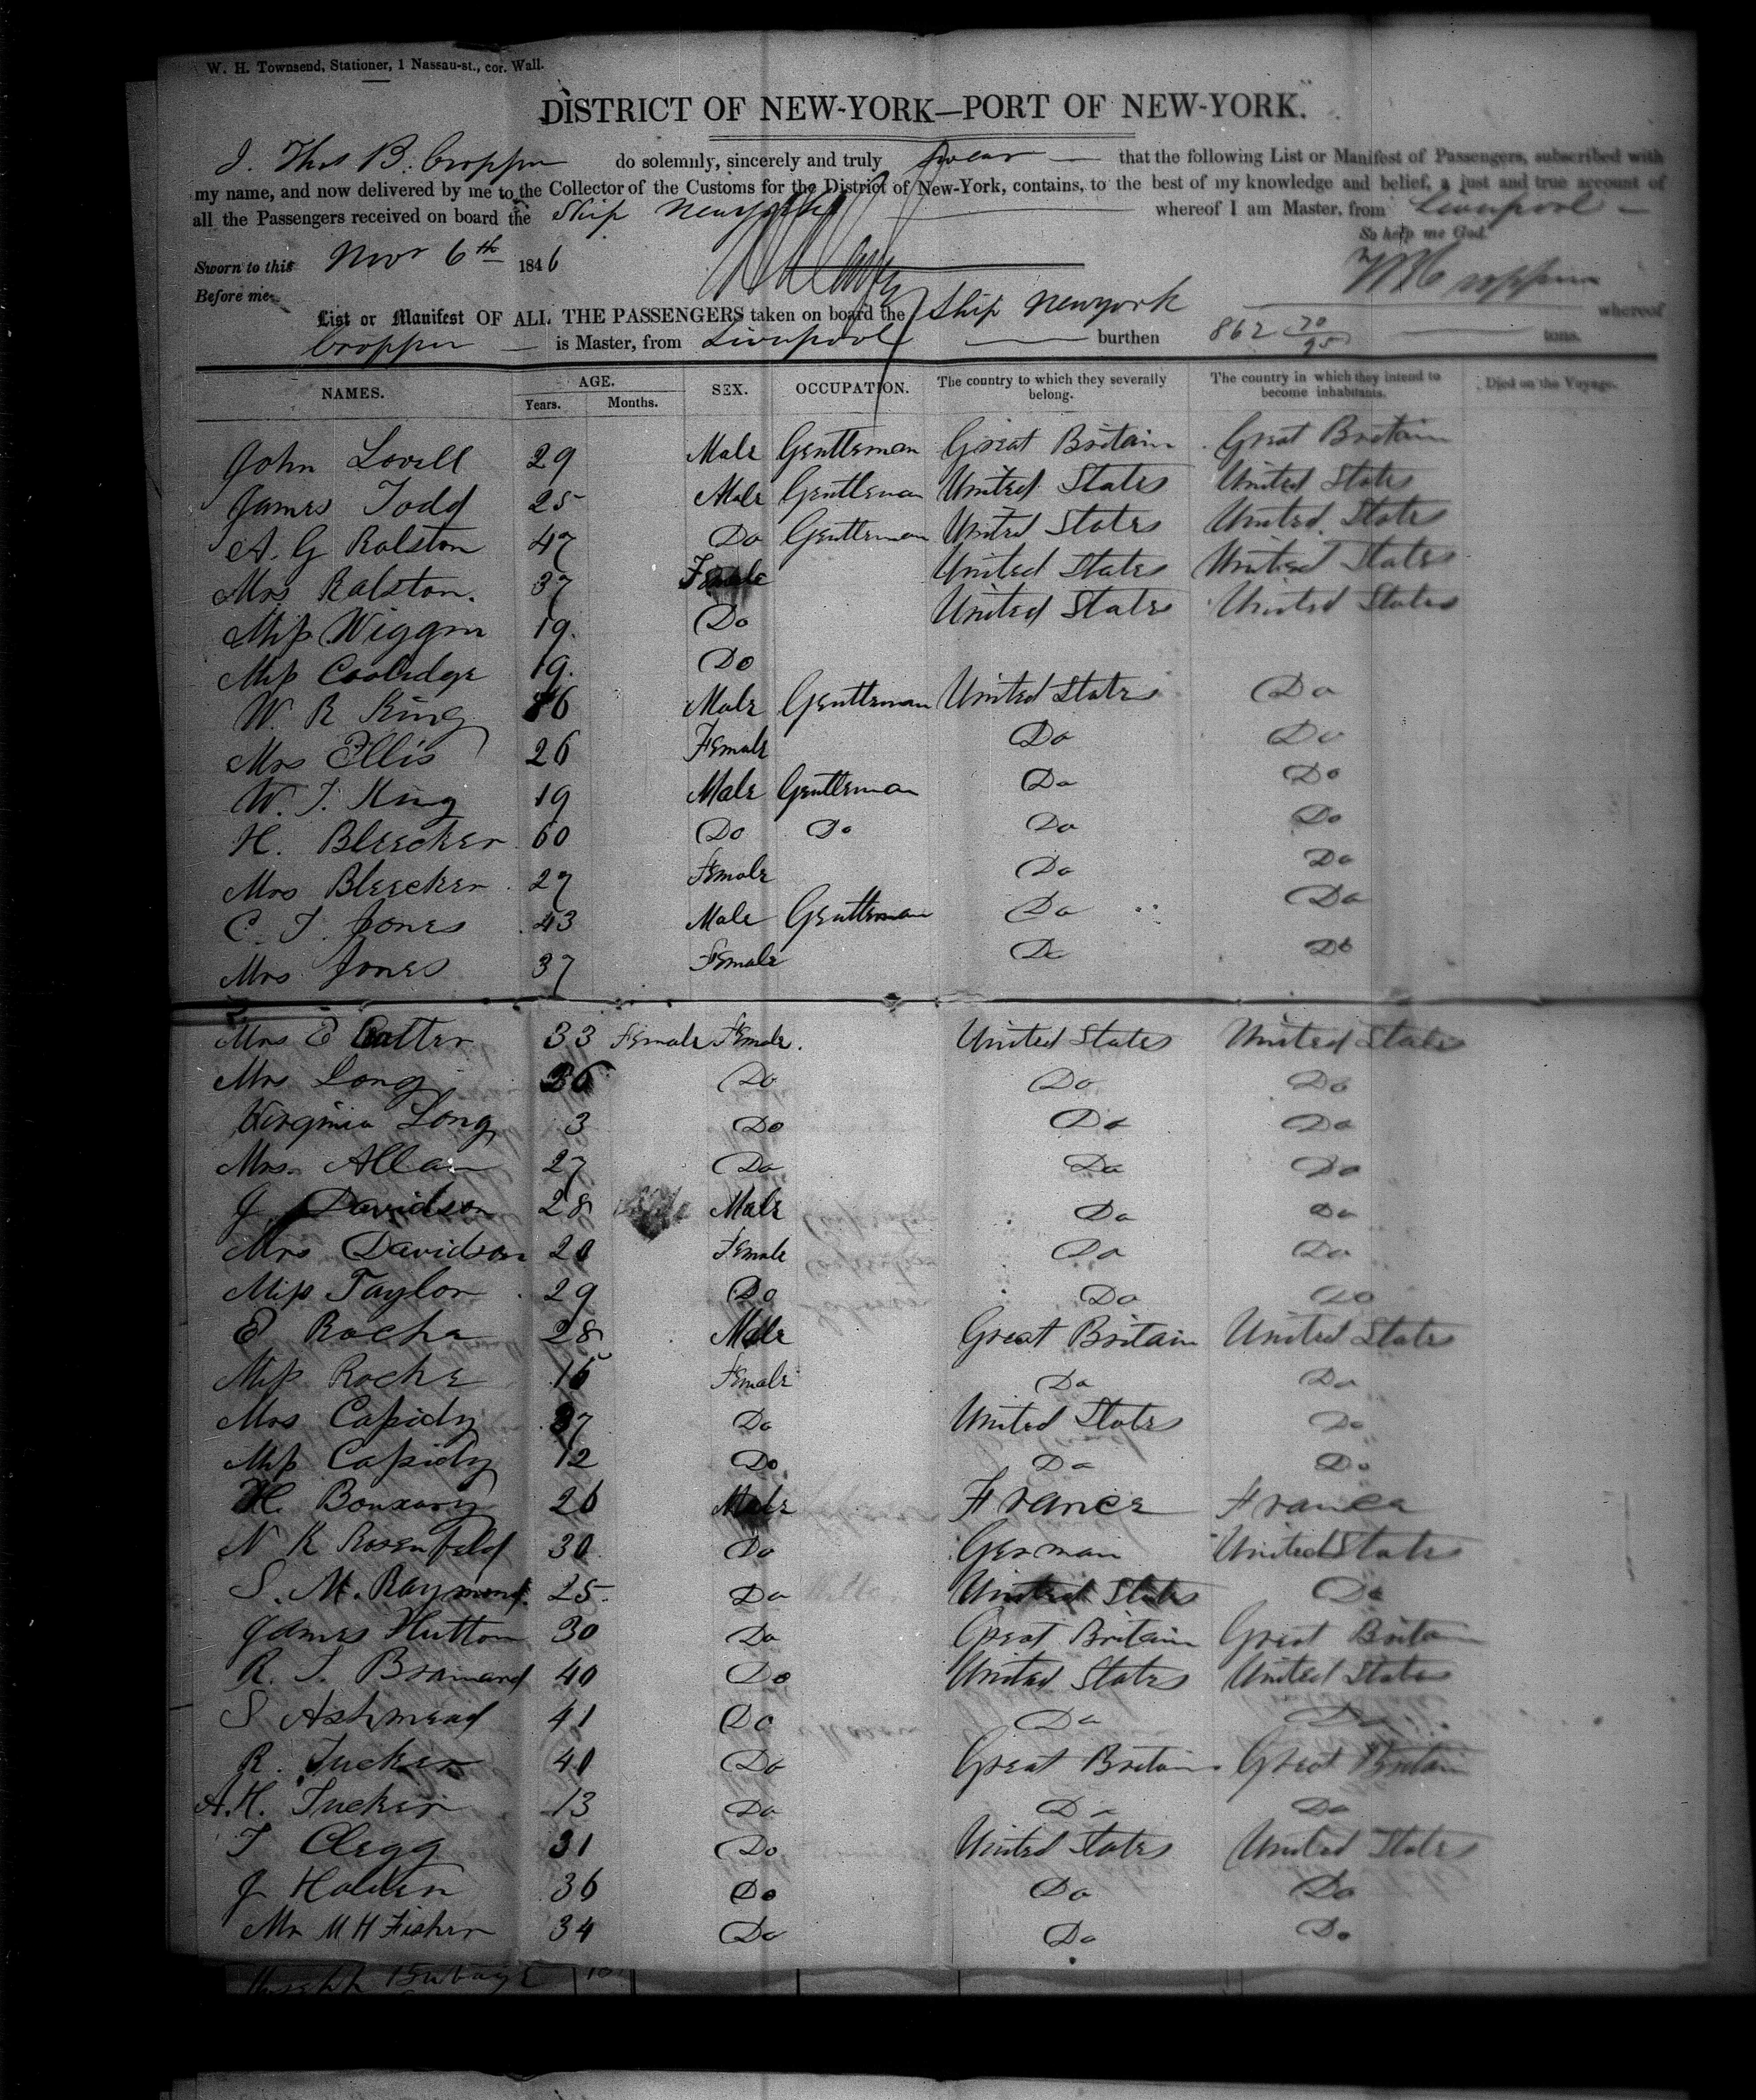 W. H. Townsend, Stationer, 1 Nassau-st., cor. Wall.
DISTRICT OF NEW-YORK—PORT OF NEW-YORK.
I. Thos B. Cropper do solemnly, sincerely and truly swear that the following List or Manifest of Passengers, subscribed with
my name, and now delivered by me to the Collector of the Customs for the District of New-York, contains, to the best of my knowledge and belief, a just and true account of
all the Passengers received on board the Ship New york whereof I am Master, from Liverpool
So help me God.
Sworn to this Novr 6th 1846
Cropper
Before me
List or Manifest OF ALL THE PASSENGERS taken on board the Ship Newyork whereof
Cropper is Master, from Liverpool burthen 862 70/95 tons.
NAMES. AGE. Years. Months. SEX. OCCUPATION. The country to which they severally belong. The country in which they intend to become inhabitants. Died on the Voyage.
John Lovell 29 Male Gentleman Great Britain Great Britain
James Todd 25 Male Gentleman United States United States
A. G Ralston 47 Do Gentleman United States United States
Mrs Ralston. 37 Female United States United States
Miss Wiggin 19. Do United States United States
Miss Coolidge 19. Do
W. R King 56 Male Gentleman United States Do
Mrs Ellis 26 Female Do Do
W. T. King 19 Male Gentleman Do Do
H. Bleecker 60 Do Do Do Do
Mrs Bleecker 27 Female Do Do
C. T. Jones 43 Male Gentleman Do Do
Mrs Jones 37 Female Do Do
Mrs E Cutter 33 Female Female. United States United States
Mrs Long 36 Do Do Do
Virginia Long 3 Do Do Do
Mrs Allan 27 Do Do Do
J Davidson 28 Male Do Do
Mrs Davidson 20 Female Do Do
Miss Taylor 29 Do Do Do
E Roche 28 Male Great Britain United States
Miss Roche 15 Female Do Do
Mrs Cassidy 37 Do United States Do
Miss Cassidy 12 Do Do Do
H. 26 Male France France
N R Rosenfeld 30 Do German United States
S. M. Raymond. 25 Do United States Do
James Hutton 30 Do Great Britain Great Britain
R. T. Brainard 40 Do United States United States
S Ashmead 41 Do Do Do
R. Tucker 40 Do Great Britain Great Britain
A. H. Tucker 13 Do Do Do
T Clegg 31 Do United States United States
J Holden 36 Do Do Do
Mr M H Fisher 34 Do Do Do